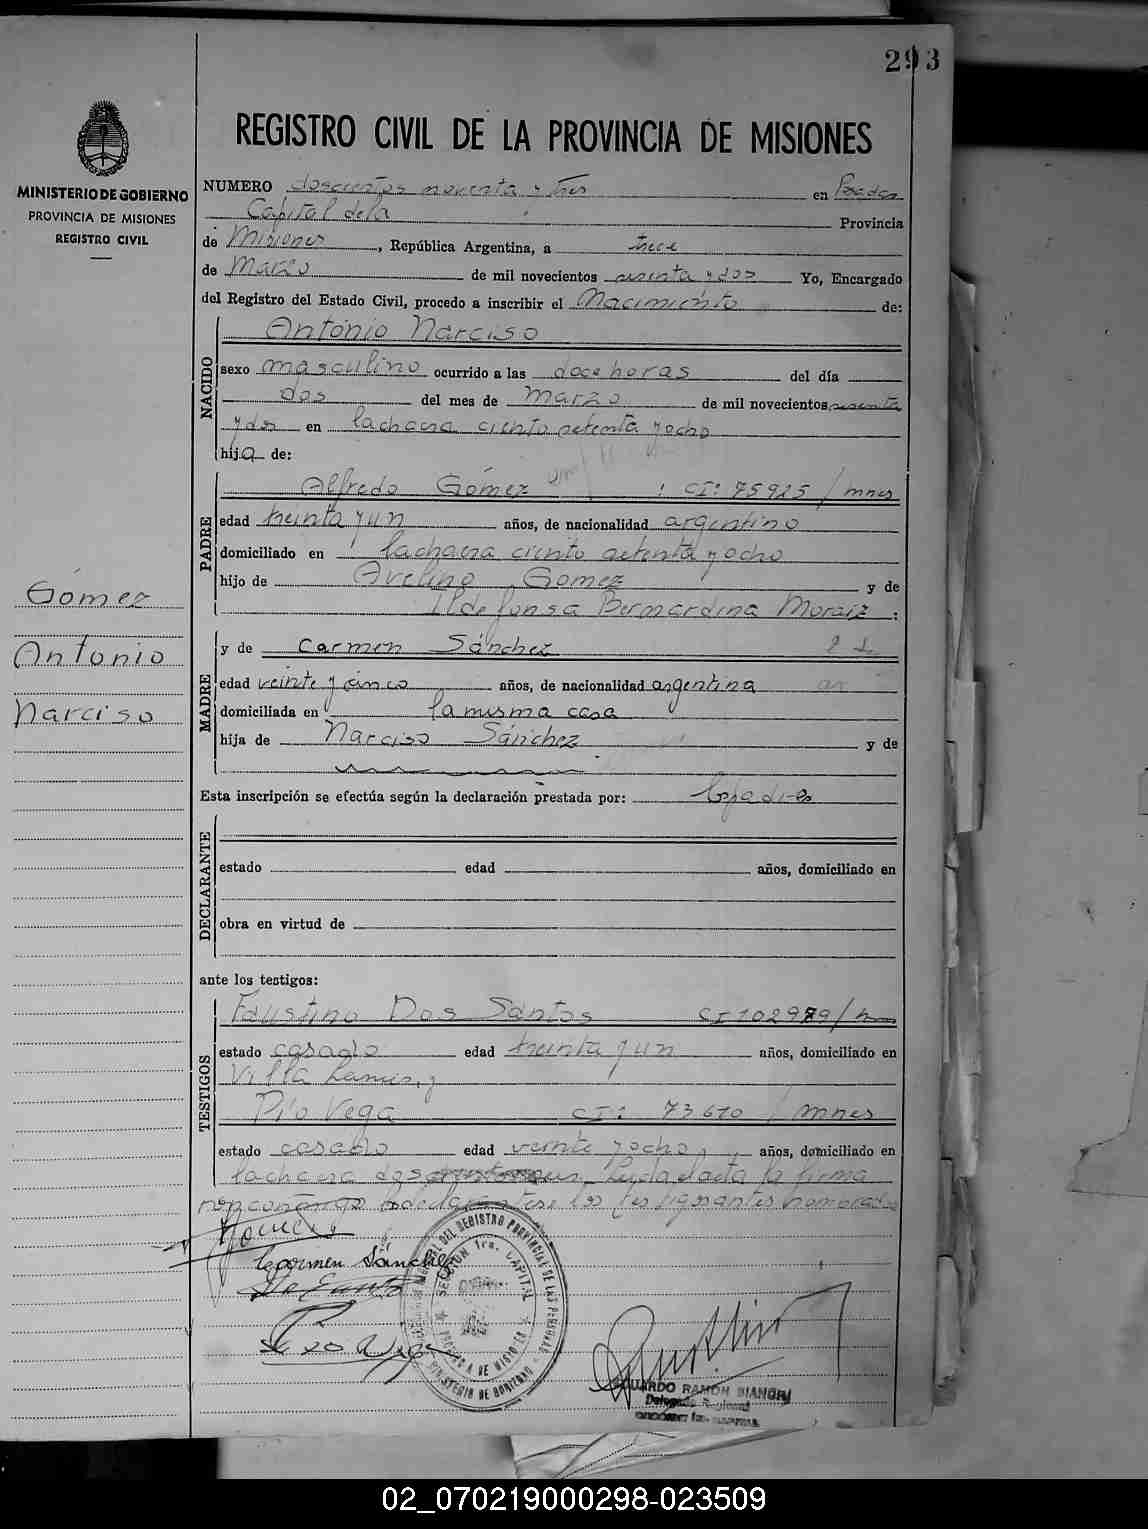 293
REGISTRO CIVIL DE LA PROVINCIA DE MISIONES
MINISTERIO DE GOBIERNO
PROVINCIA DE MISIONES
REGISTRO CIVIL
NUMERO doscientos noventa y tres en Posadas
Capital de la Provincia
de Misiones, República Argentina, a trece
de Marzo de mil novecientos sesenta y dos Yo, Encargado
del Registro del Estado Civil, procedo a inscribir el Nacimiento de:
NACIDO
Antonio Narciso
sexo masculino ocurrido a las doce horas del día
dos del mes de marzo de mil novecientos sesenta
y dos en la chacra ciento setenta y ocho
hijo de:
PADRE
Alfredo Gómez : CI: 75925 / mnes
edad treinta y un años, de nacionalidad argentino
domiciliado en la chacra ciento setenta y ocho
hijo de Avelino Gomez y de
Ildefonsa Bernardina Moraiz :
Gómez
Antonio
Narciso
MADRE
y de Carmen Sánchez
edad veinte y cinco años, de nacionalidad argentina
domiciliada en la misma casa
hija de Narciso Sánchez y de
Esta inscripción se efectúa según la declaración prestada por:
DECLARANTE
estado edad años, domiciliado en
obra en virtud de
ante los testigos:
TESTIGOS
Faustino Dos Santos CI 102979/
estado casado edad treinta y un años, domiciliado en
Villa Lanus, y
Pío Vega CI: 73610 / mnes
estado casado edad veinte y ocho, años, domiciliado en
la chacra leida el acta la firma
los testigos nombrados
Carmen Sánchez
SECCION 1ra. CAPITAL
PROVINCIA DE MISIONES
MINISTERIO DE GOBIERNO
EDUARDO RAMON BIANCHI
Delegado Regional
02_070219000298-023509